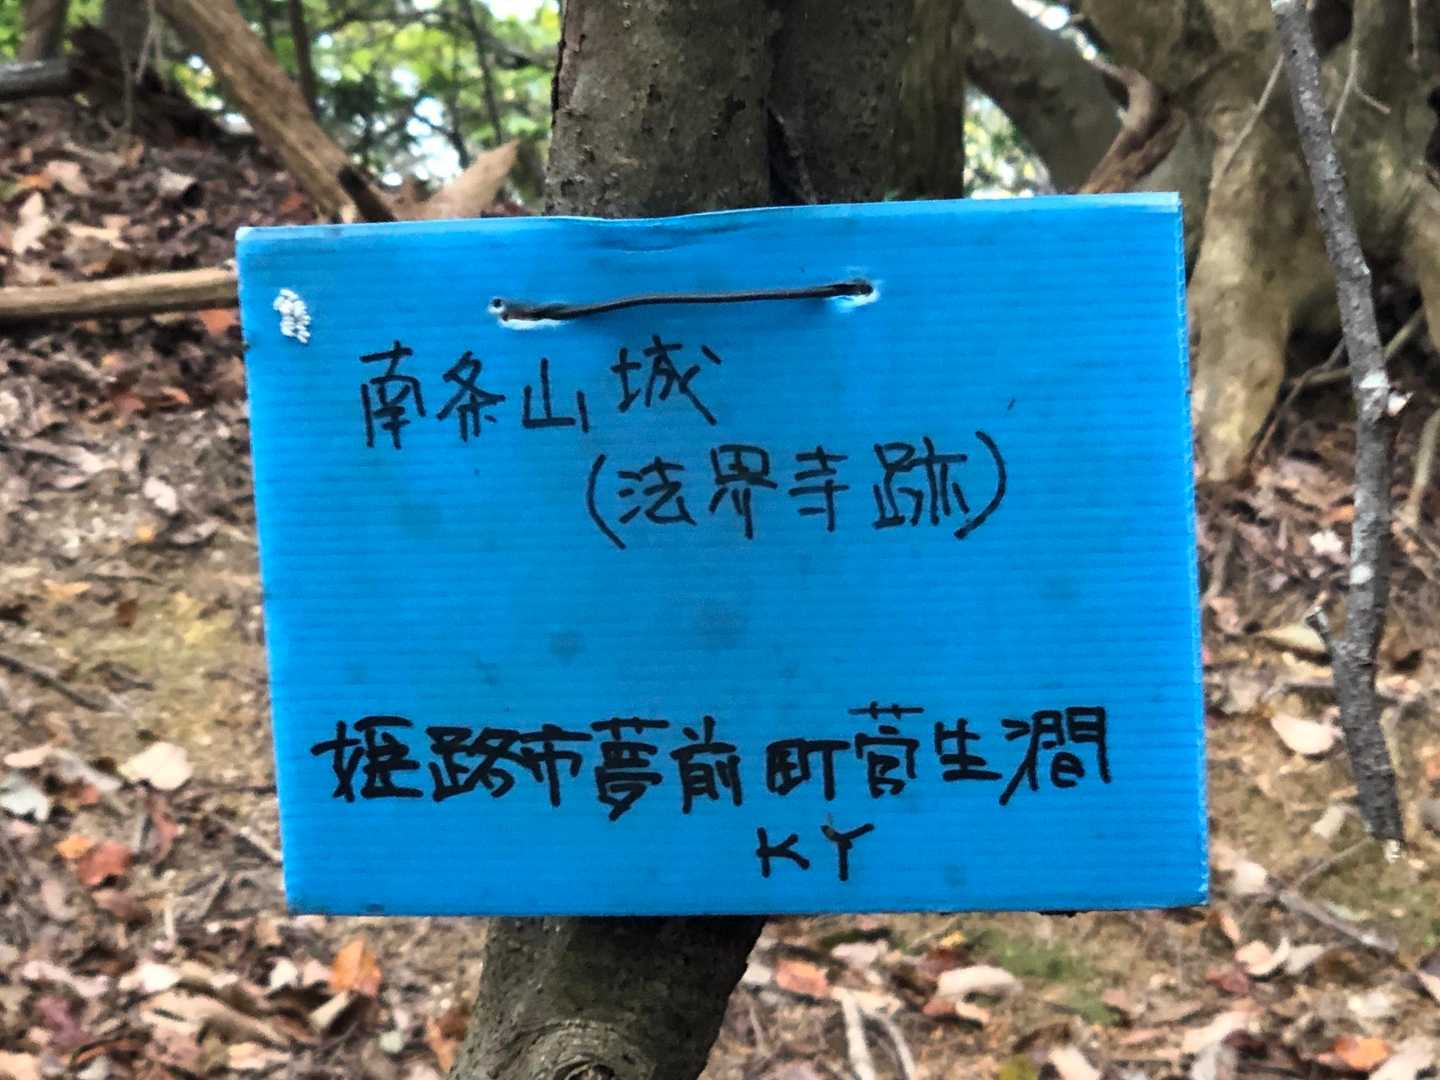 南条山城
(法界寺跡)
姫路市夢前町菅生澗
KY